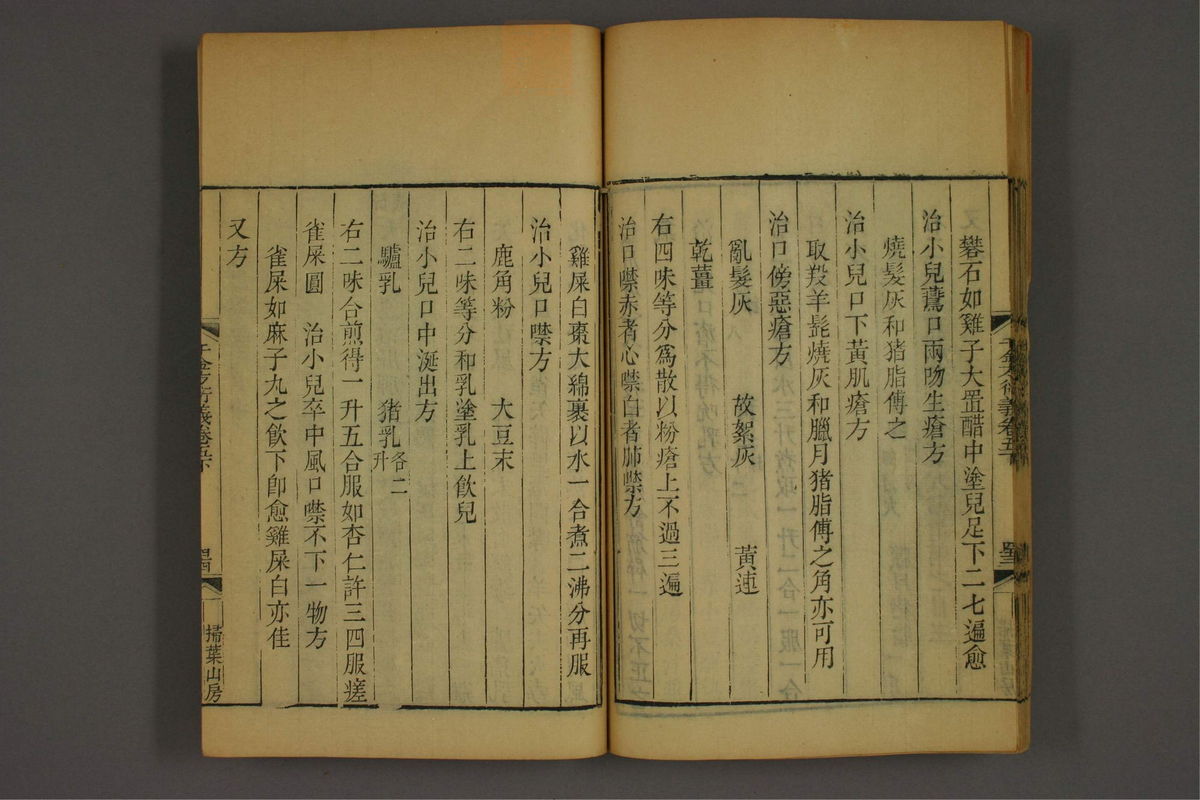 礬石如雞子大置醋中塗兒足下二七遍愈
治小兒鷰口兩吻生瘡方
燒髮灰和猪脂傅之
治小兒口下黃肌瘡方
取羖羊髭燒灰和臘月猪脂傅之角亦可用
治口傍惡瘡方
亂髮灰 故絮灰 黃連
乾薑
右四味等分爲散以粉瘡上不過三遍
治口噤赤者心噤白者肺噤方
雞屎白棗大綿裹以水一合煮二沸分再服
治小兒口噤方
鹿角粉 大豆末
右二味等分和乳塗乳上飮兒
治小兒口中涎出方
驢乳 猪乳各二升
右二味合煎得一升五合服如杏仁許三四服瘥
雀屎圓 治小兒卒中風口噤不下一物方
雀屎如麻子丸之飮下卽愈雞屎白亦佳
又方
千金方衍義卷五下
掃葉山房